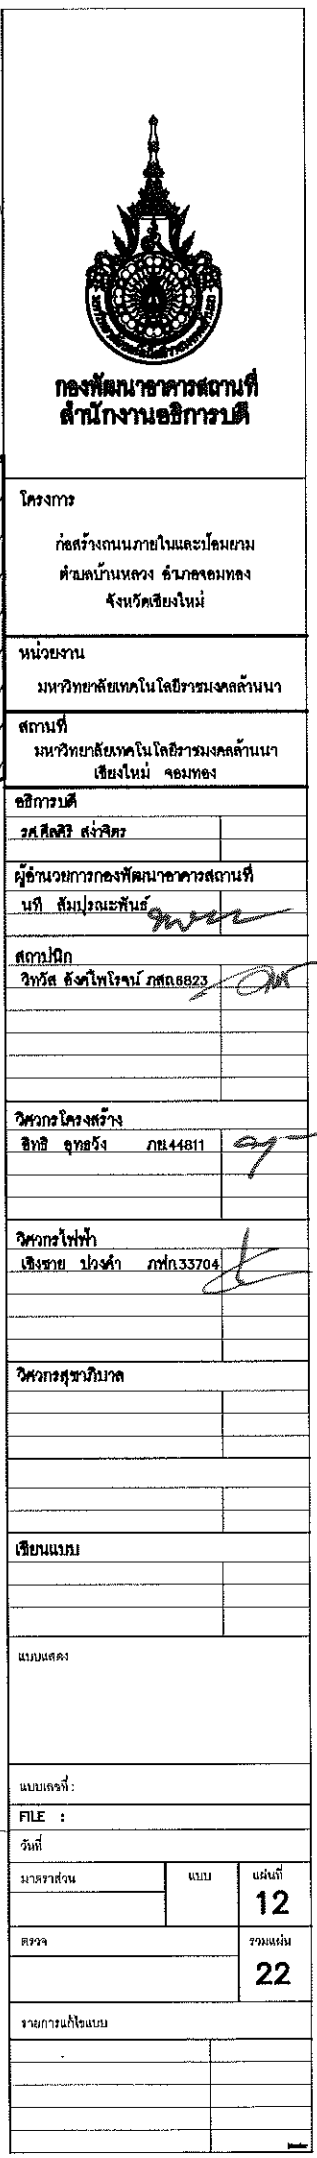 กองพัฒนาอาคารสถานที่
สำนักงานอธิการบดี
โครงการ
ก่อสร้างถนนภายในและป้อมยาม
ตำบลบ้านหลวง อำเภอจอมทอง
จังหวัดเชียงใหม่
หน่วยงาน
มหาวิทยาลัยเทคโนโลยีราชมงคลล้านนา
สถานที่
มหาวิทยาลัยเทคโนโลยีราชมงคลล้านนา
เชียงใหม่ จอมทอง
อธิการบดี
รศ.ศีลศิริ สง่าจิตร
ผู้อำนวยการกองพัฒนาอาคารสถานที่
นที สัมปุรณะพันธ์
สถาปนิก
วิทวัส อังคไพโรจน์ ภสถ.6823
วิศวกรโครงสร้าง
อิทธิ อุทธวัง ภย.44811
วิศวกรไฟฟ้า
เชิงชาย ปวงคำ ภฟก.33704
วิศวกรสุขาภิบาล
เขียนแบบ
แบบแสดง
แบบเลขที่ :
FILE :
วันที่
มาตราส่วน แบบ แผ่นที่
12
ตรวจ รวมแผ่น
22
รายการแก้ไขแบบ